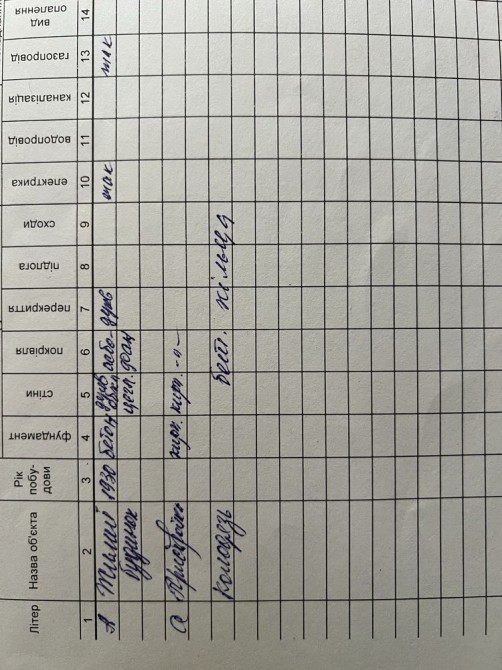 Літер Назва об'єкта Рік побу-дови фундамент стіни покрівля перекриття підлога сходи електрика водопровід каналізація газопровід вид опалення
1 2 3 4 5 6 7 8 9 10 11 12 13 14
А Жилий 1930 бетон дерев азбо- дерев так так
будинок обкл. цегл.
а Прибуд. кирп. кирп. -"-
Колодязь бет. кільця